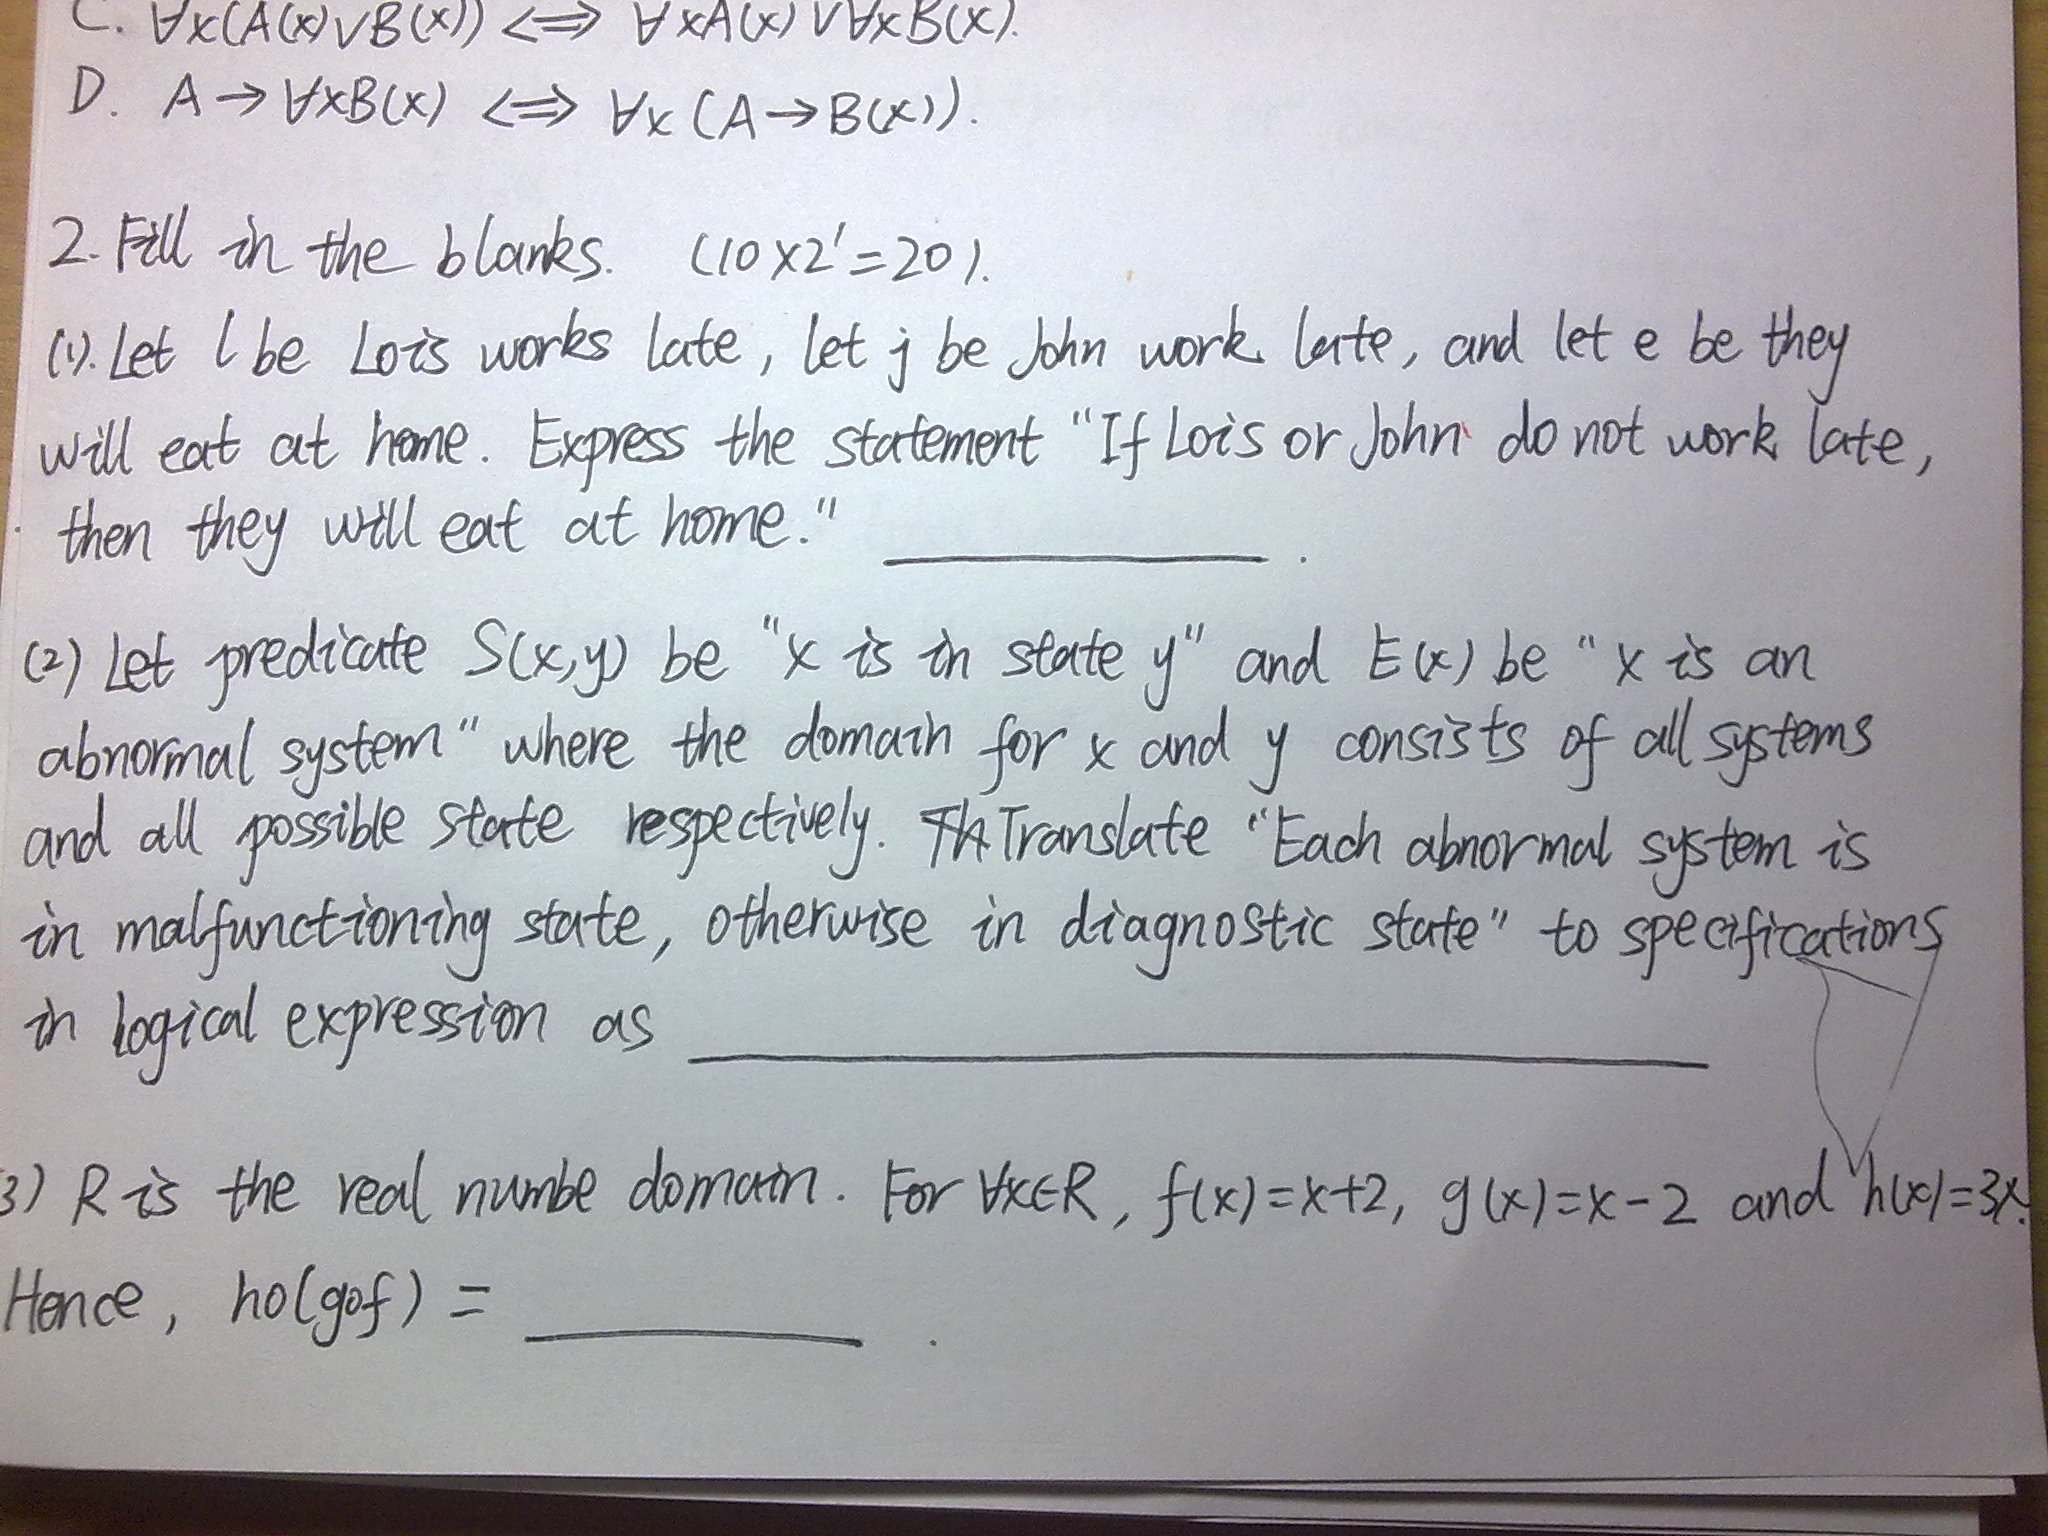 C. ∀x(A(x)∨B(x)) <=> ∀xA(x)∨∀xB(x).
D. A→∀xB(x) <=> ∀x(A→B(x)).
2. Fill in the blanks. (10×2'=20).
(1). Let l be Lois works late, let j be John work late, and let e be they
will eat at home. Express the statement "If Lois or John do not work late,
then they will eat at home." ________.
(2) Let predicate S(x,y) be "x is in state y" and E(x) be "x is an
abnormal system" where the domain for x and y consists of all systems
and all possible state respectively. Translate "Each abnormal system is
in malfunctioning state, otherwise in diagnostic state" to specifications
in logical expression as ________
3) R is the real numbe domain. For ∀x∈R, f(x)=x+2, g(x)=x-2 and h(x)=3x.
Hence, ho(gof) = ________.